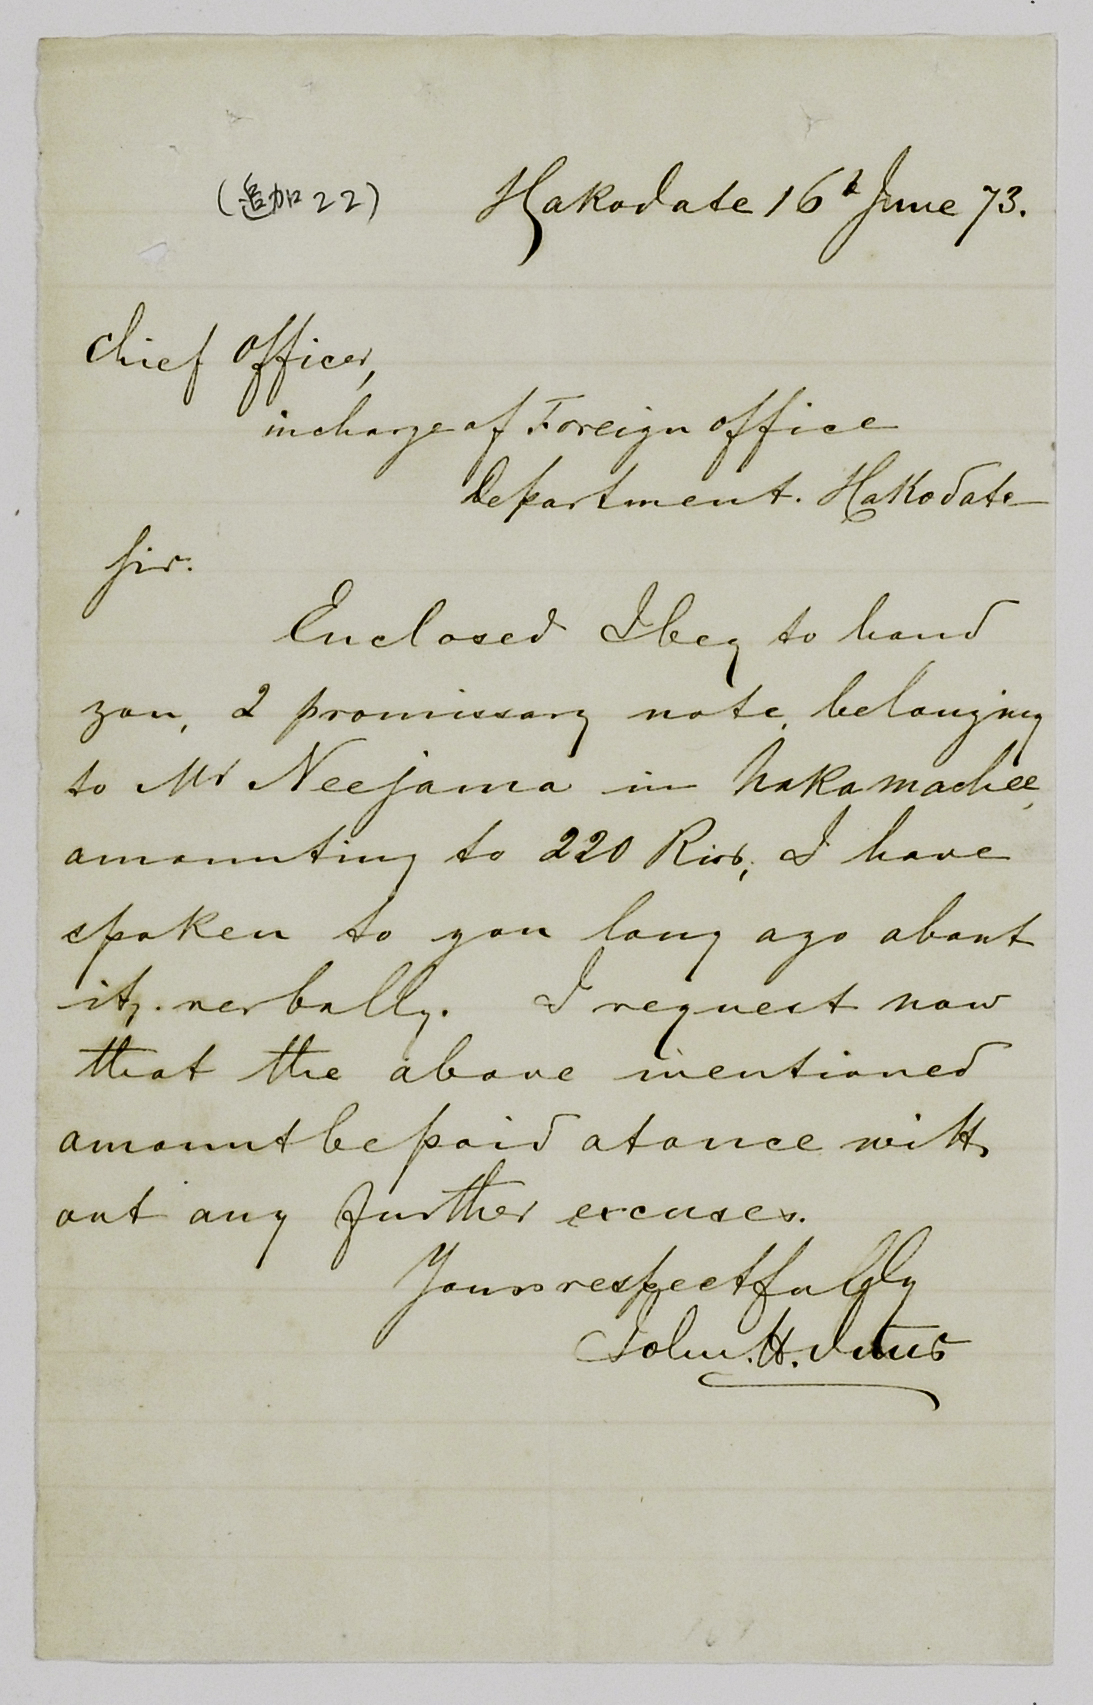 (追加22) Hakodate 16th June 73.
Chief Officer,
in charge of Foreign office
Department. Hakodate
Sir.
Enclosed I beg to hand
you, 2 promissory note, belonging
to Mr Neejama in Nakamachee,
amounting to 220 Rios, I have
spoken to you long ago about
it, verbally. I request now
that the above mentioned
amount be paid at once with
out any further excuses.
Yours respectfully
John. H.